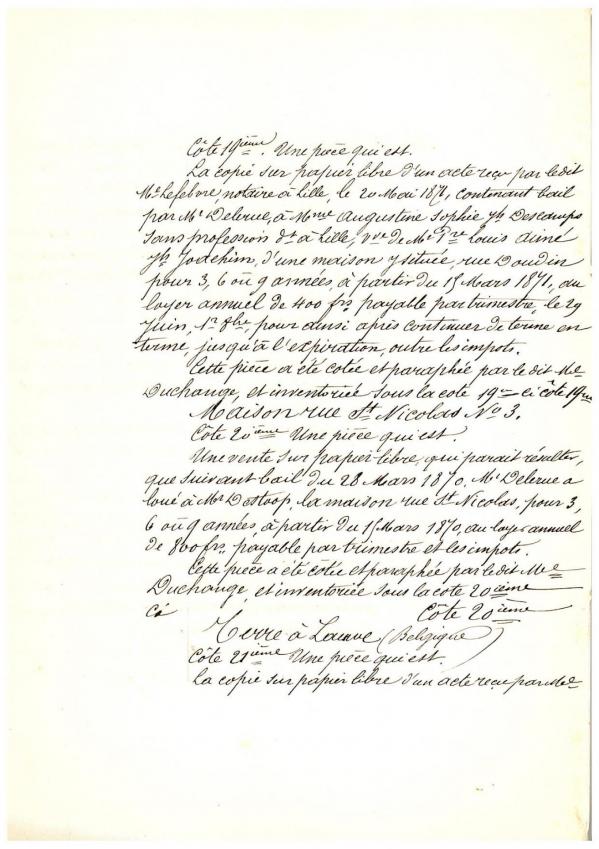 Côte 19ième. Une pièce qui est.
La copie sur papier libre d'un acte reçu par le dit
Me Lefebvre, notaire à Lille, le 20 Mai 1871, contenant bail
par Mr Delerue, à Mme Augustine Sophie Descamps
sans profession dt à Lille, vve de Mr Pre Louis Aimé
Joachim, d'une maison y située, rue Doudin
pour 3, 6 où 9 années, à partir du 15 Mars 1871, au
loyer annuel de 400 frs, payable par trimestre, le 29
Juin, 1er 8bre, pour ainsi après continuer de terme en
terme, jusqu'à l'expiration, outre les impots.
Cette pièce a été cotée et paraphée par le dit Me
Duchange, et inventoriée sous la cote 19me ci côte 19me
Maison rue St Nicolas No 3.
Côte 20ième Une pièce qui est.
Une vente sur papier libre, qui parait résulter,
que suivant bail du 28 Mars 1870, Mr Delerue a
loué à Mr Destoop, la maison rue St Nicolas, pour 3,
6 où 9 années à partir du 15 Mars 1870, au loyer annuel
de 800 frs, payable par trimestre et les impots.
Cette pièce a été cotée et paraphée par le dit Me
Duchange et inventoriée sous la cote 20ième
Ci Côte 20ième
Terre à Lauwe (Belgique)
Côte 21ième Une pièce qui est.
La copie sur papier libre d'un acte reçu par Me